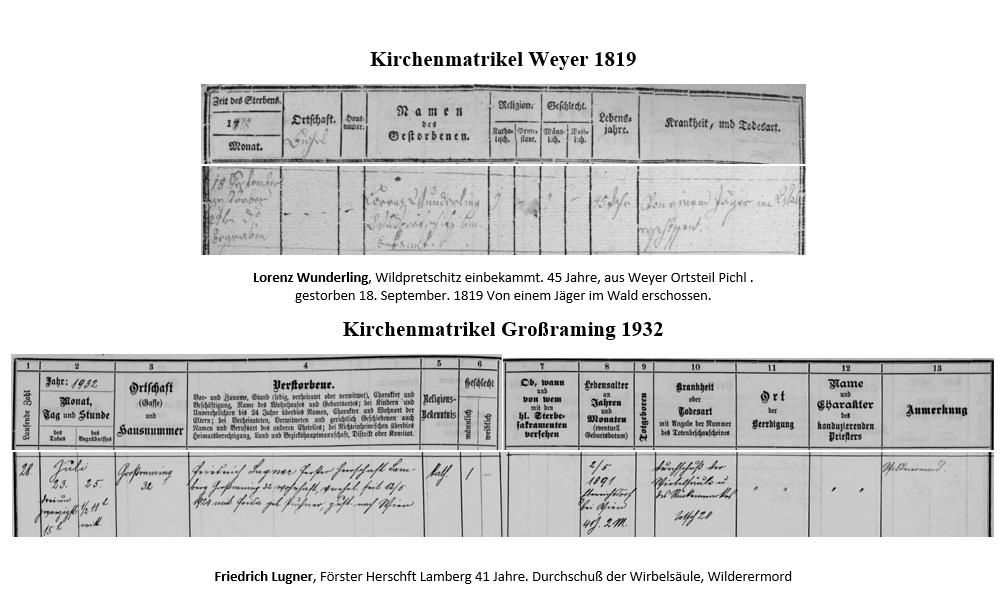 Kirchenmatrikel Weyer 1819
Zeit des Sterbens.
Monat.
Ortschaft.
Haus-
numer.
Namen
des
Gestorbenen.
Religion.
Katho-
lisch.
Prote-
stant.
Geschlecht.
Männ-
lich.
Weib-
lich.
Lebens-
jahre.
Krankheit, und Todesart.
18 September
Lorenz Wunderling
begraben
Lorenz Wunderling, Wildpretschitz einbekammt. 45 Jahre, aus Weyer Ortsteil Pichl .
gestorben 18. September. 1819 Von einem Jäger im Wald erschossen.
Kirchenmatrikel Großraming 1932
1 2 3 4 5 6 7 8 9 10 11 12 13
Laufende Zahl
Jahr: 1932
Monat,
Tag und Stunde
des
Todes
des
Begräbnisses
Ortschaft
(Gasse)
und
Hausnummer
Verstorbene.
Vor- und Zuname, Stand (ledig, verheiratet oder verwitwet), Charakter und
Beschäftigung, Name des Wohnhauses und Geburtsortes; bei Kindern und
Unverehelichten bis 24 Jahre überdies Namen, Charakter und Wohnort der
Eltern; bei Verheirateten, Verwitweten und gerichtlich Geschiedenen auch
Namen und Berufsort des anderen Ehteiles; bei Nichteinheimischen überdies
Heimatsberechtigung, Land und Bezirkshauptmannschaft, Distrikt oder Komitat.
Religions-
Bekenntnis
Geschlecht
männlich
weiblich
Ob, wann
und
von wem
mit den
hl. Sterbe-
sakramenten
versehen
Lebensalter
an
Jahren
und
Monaten
(eventuell
Geburtsdatum)
Totgeboren
Krankheit
oder
Todesart
mit Angabe der Nummer
des Totenbeschauscheines
Ort
der
Beerdigung
Name
und
Charakter
des
konduzierenden
Priesters
Anmerkung
28.
Juli
23.
25.
Großraming
32
Friedrich Lugner Förster Herrschaft Lam-
berg Großraming 32 wohnhaft, verehel. seit
Kath.
1
2/5
1891
bei Wien
41 J. 2 M.
Durchschuß der
Wirbelsäule
Wilderermord.
Friedrich Lugner, Förster Herschft Lamberg 41 Jahre. Durchschuß der Wirbelsäule, Wilderermord